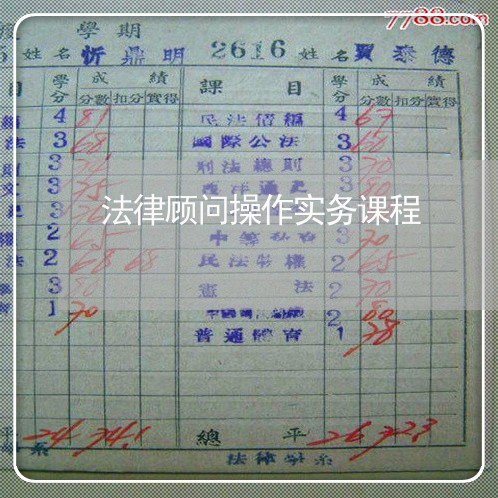 7788.com
學期
姓名 忻鼎明 2616 姓名 賈泰德
目 學分 成績 課目 學分 成績
分數 扣分 實得 分數 扣分 實得
4 81 民法債編 4 67
法 3 68 國際公法 3 60
3 刑法總則 3 70
3 75 西洋通史 3 80
法律顾问操作实务课程
2 65 3 70
法 2 68 68 民法物權 2 65
3 80 憲法 2 70
1 70 2 80
普通體育 1 78
平 24 74.1 總平 26 72.3
系 法律學系